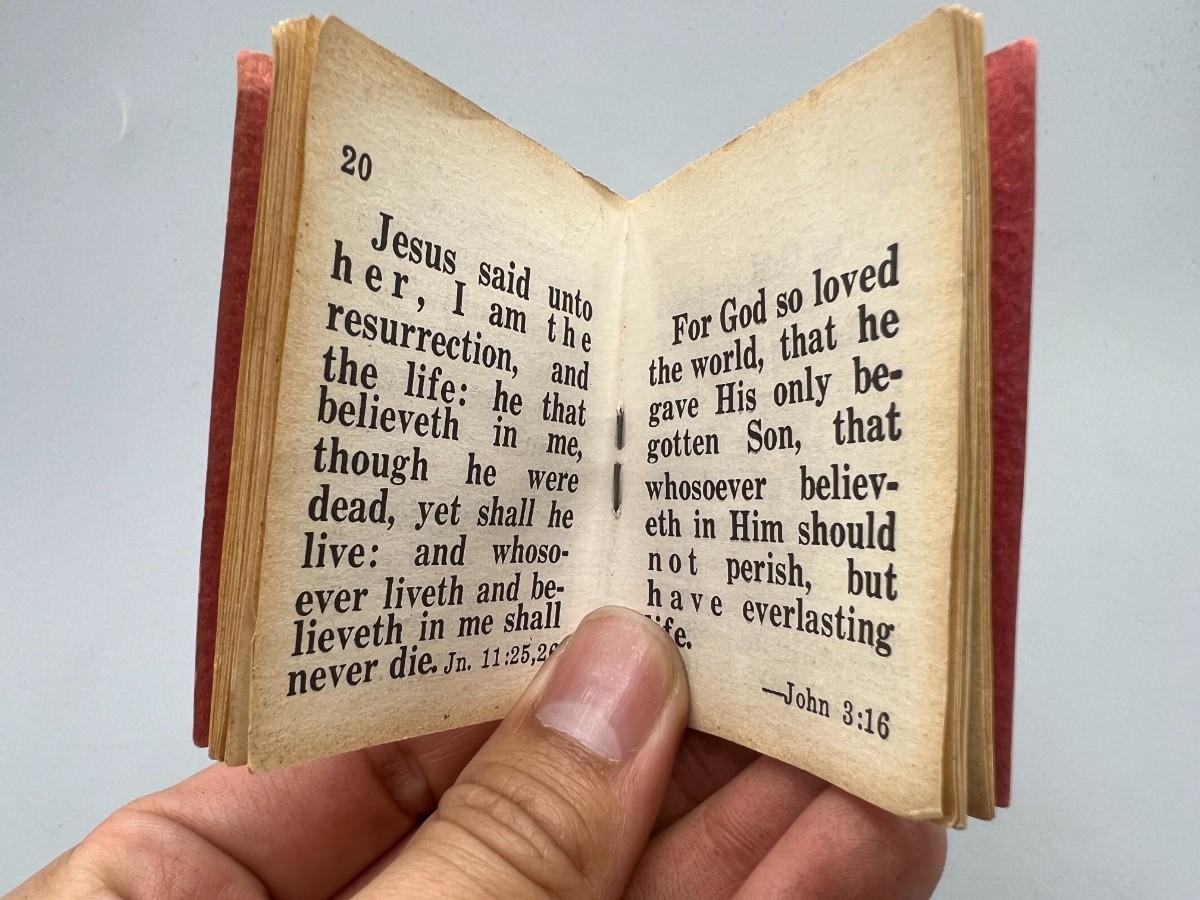 20
Jesus said unto
her, I am the
resurrection, and
the life: he that
believeth in me,
though he were
dead, yet shall he
live: and whoso-
ever liveth and be-
lieveth in me shall
never die. Jn. 11:25,26
For God so loved
the world, that he
gave His only be-
gotten Son, that
whosoever believ-
eth in Him should
not perish, but
have everlasting
life.
—John 3:16